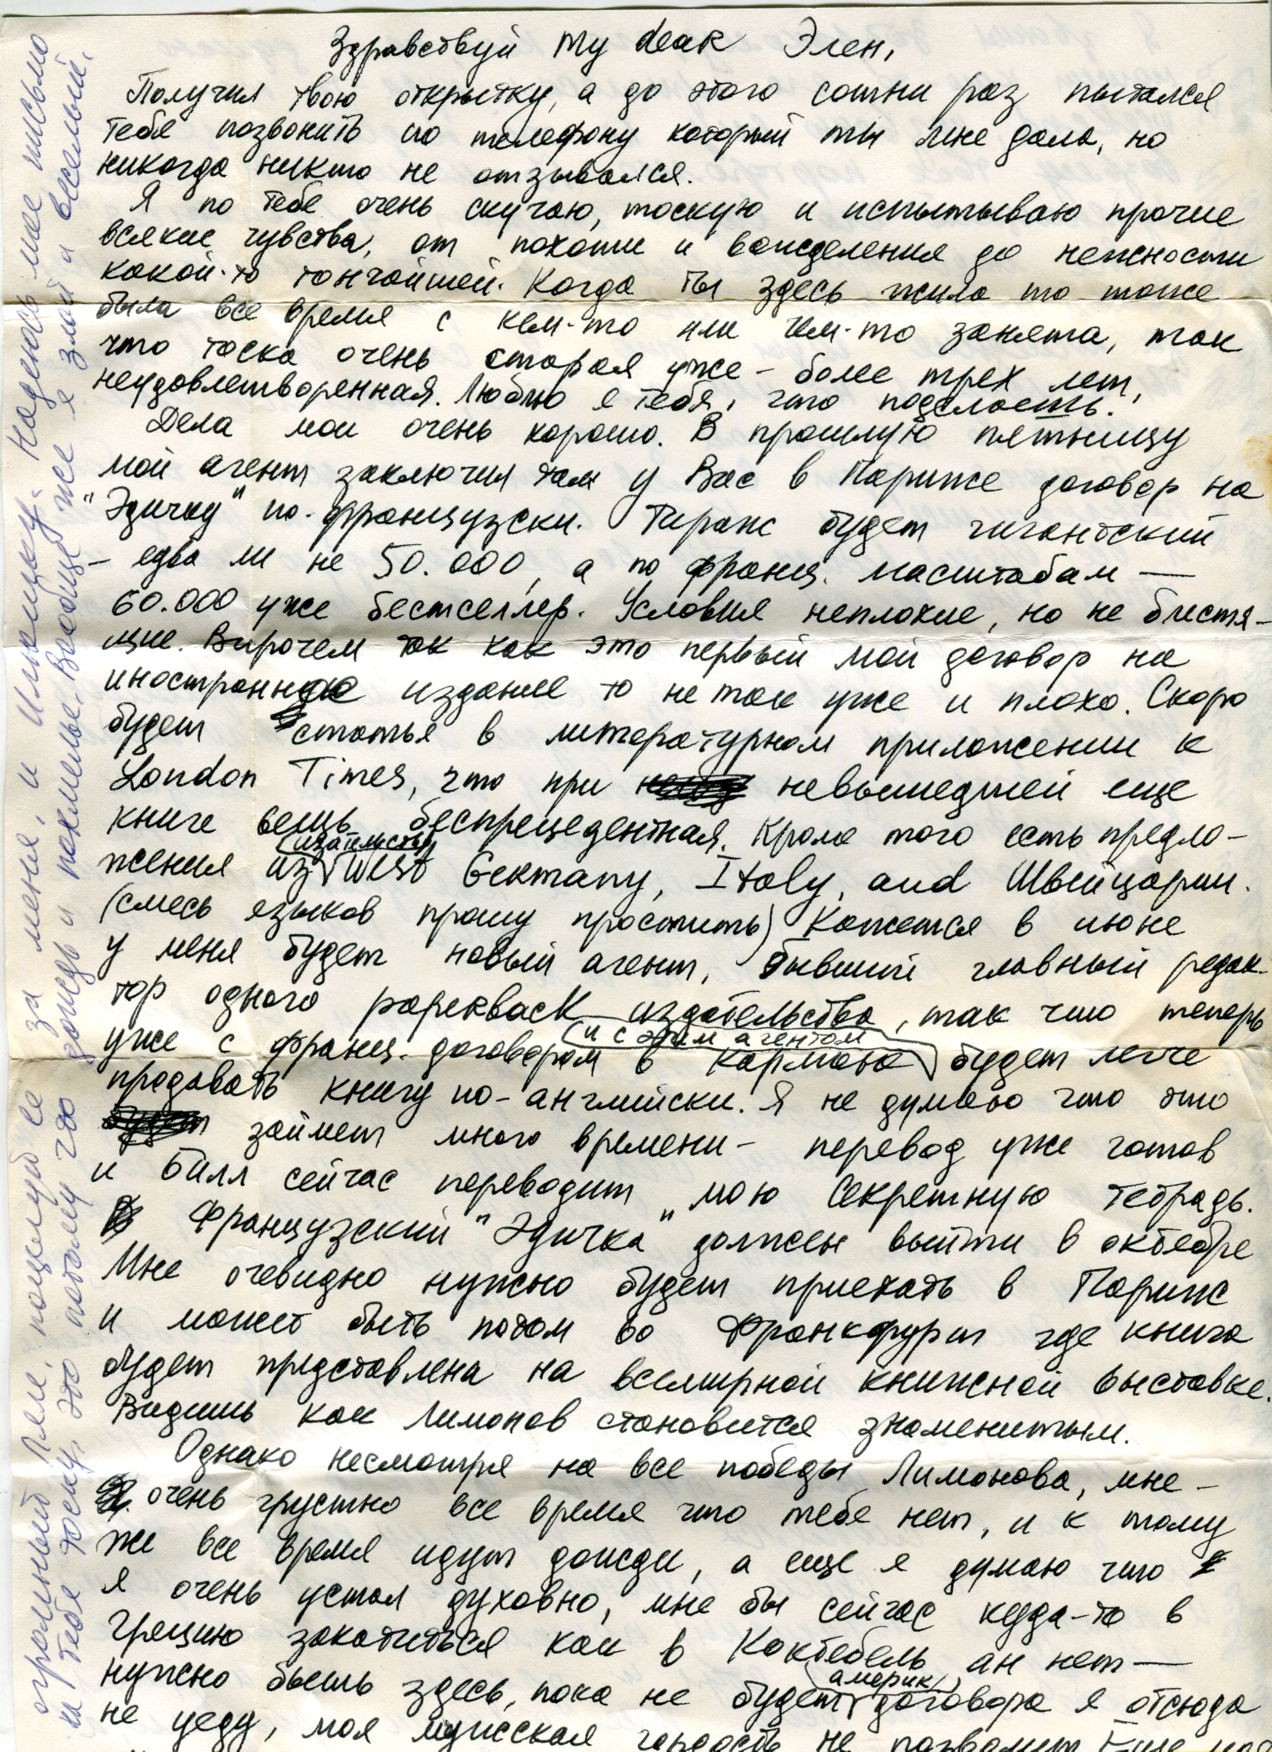 Здравствуй my dear Элен,
Получил твою открытку, а до этого сотни раз пытался
тебе позвонить по телефону который ты мне дала, но
никогда никто не отзывался.
Я по тебе очень скучаю, тоскую и испытываю прочие
всякие чувства, от похоти и вожделения до нежности
какой-то тончайшей. Когда ты здесь жила то тоже
была все время с кем-то или чем-то занята, так
что тоска очень старая уже – более трех лет,
неудовлетворенная. Люблю я тебя, что поделаешь.
Дела мои очень хорошо. В прошлую пятницу
мой агент заключил там у Вас в Париже договор на
"Эдичку" по-французски. Тираж будет гигантский
– едва ли не 50.000, а по франц. масштабам —
60.000 уже бестселлер. Условия неплохие, но не блестя-
щие. Впрочем так как это первый мой договор на
иностранное издание то не так уже и плохо. Скоро
будет статья в литературном приложении к
London Times, что при невышедшей еще
книге вещь беспрецедентная. Кроме того есть предло-
жения из West Germany, Italy, and Швейцарии.
(смесь языков прошу простить) Кажется в июне
у меня будет новый агент, бывший главный редак-
тор одного paperback издательства, так что теперь
(и с этим агентом)
уже с франц. договором в кармане будет легче
продавать книгу по-английски. Я не думаю что это
займет много времени – перевод уже готов
и Билл сейчас переводит мою Секретную тетрадь.
Французский "Эдичка" должен выйти в октябре
Мне очевидно нужно будет приехать в Париж
и может быть потом во Франкфурт где книга
будет представлена на всемирной книжной выставке.
Видишь как Лимонов становится знаменитым.
Однако несмотря на все победы Лимонова, мне –
очень грустно все время что тебе нет, и к тому
же все время идут дожди, а еще я думаю что
я очень устал духовно, мне бы сейчас куда-то в
Грецию закатиться как в Коктебель ан нет —
(америк.)
нужно быть здесь, пока не будет договора я отсюда
не уеду, моя мужская гордость не позволит
огромный Ляле, поцелуй ее за меня, и Илюшку. Надеюсь мое письмо
тебе тоску, это потому что дождь и похмелье. Вообще же я злой и веселый.